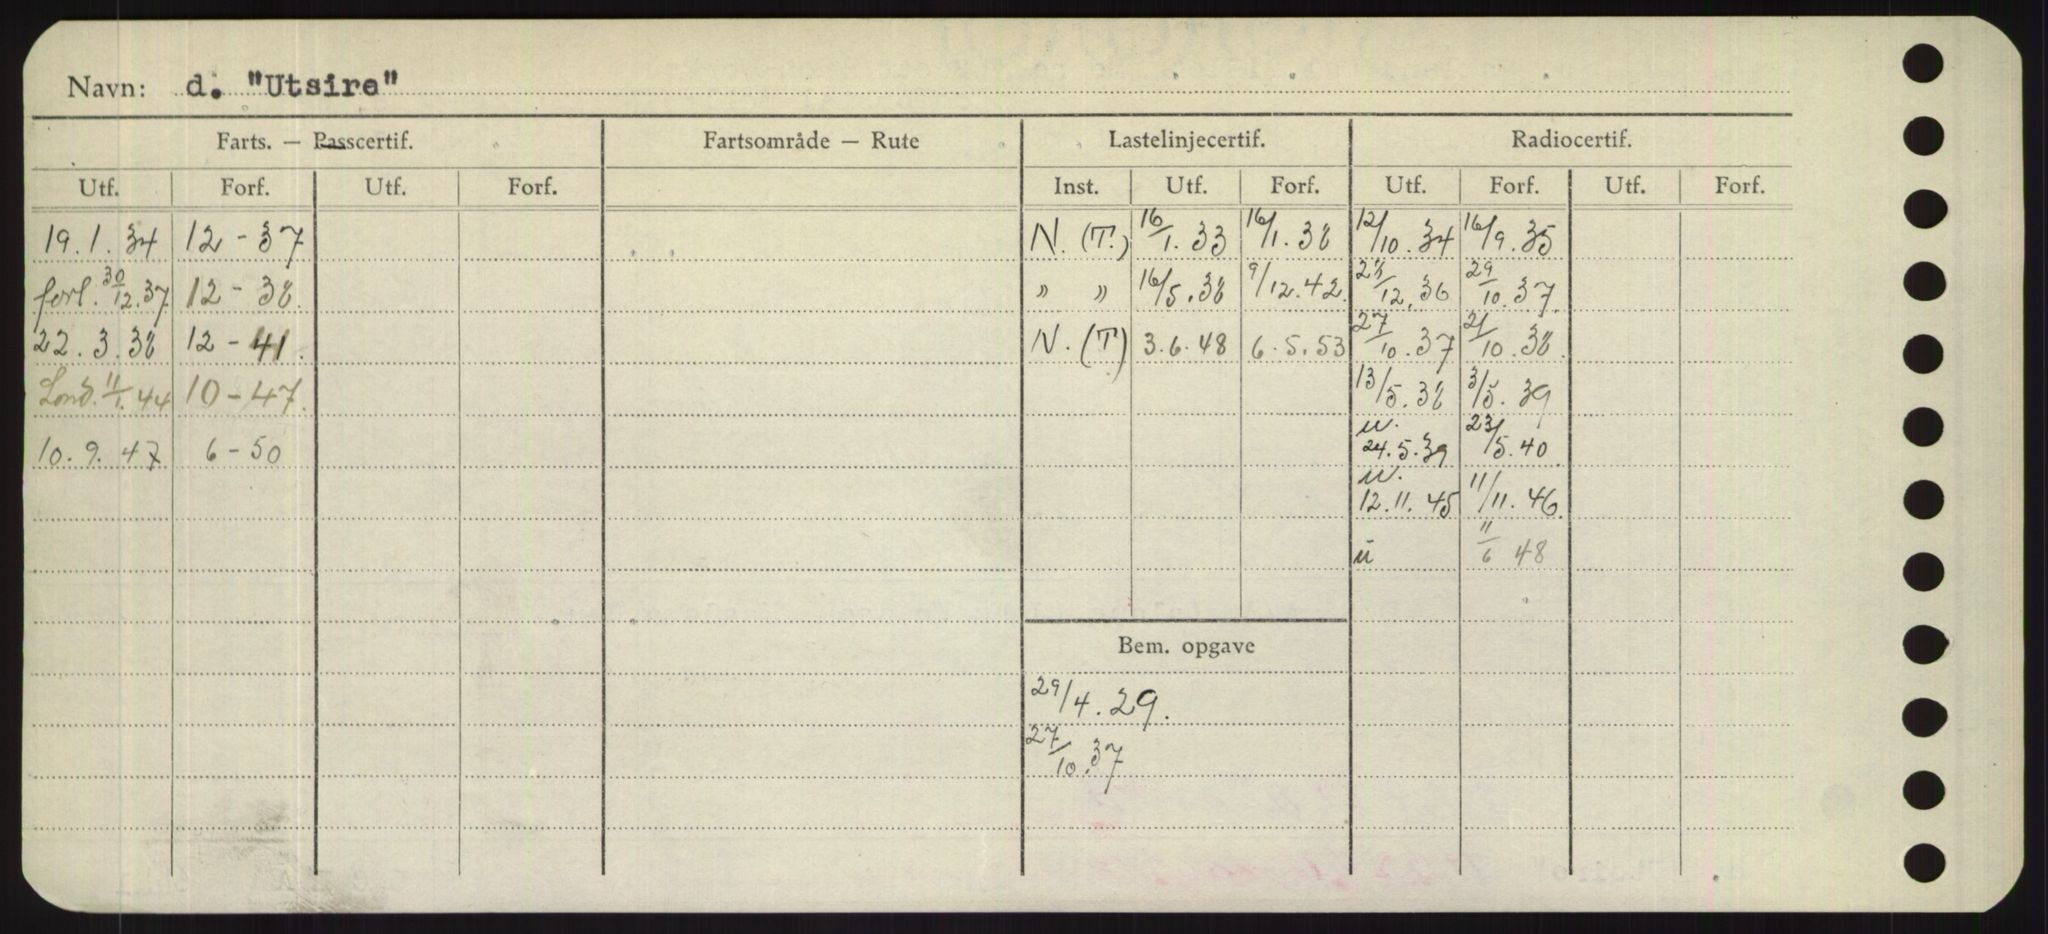 Navn: d. "Utsire"
Farts. — Passcertif. Fartsområde — Rute Lastelinjecertif. Radiocertif.
Utf. Forf. Utf. Forf. Inst. Utf. Forf. Utf. Forf. Utf. Forf.
19.1.34 12-37 N. (T.) 16/1.33 16/1.38 12/10.34 16/9.35
forl. 30/12.37 12-38. " " 16/5.38 9/12.42. 12.36 29/10.37.
22.3.38 12-41. N. (T) 3.6.48 6.5.53 27/10.37 21/10.38.
Lond. 11/1.44 10-47. 13/5.38 3/5.39
10.9.47 6-50 u. 24.5.39 23/5.40
u. 12.11.45 11/11.46.
u 11/6 48
Bem. opgave
29/4.29.
27/10.37